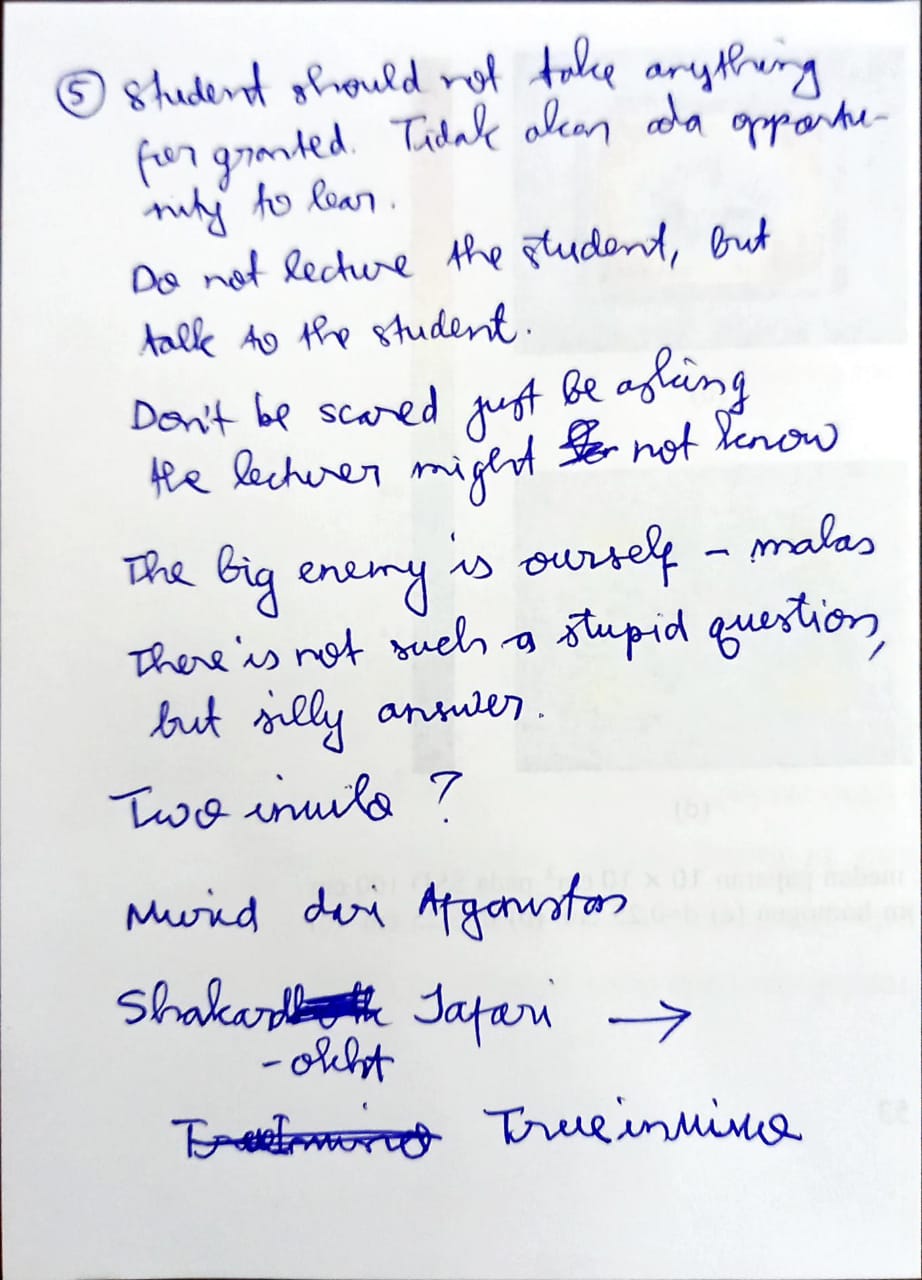 ⑤ student should not take anything
for granted. Tidak akan ada opportu-
nity to lear.
Do not lecture the student, but
talk to the student.
Don't be scared just be asking
the lecturer might not know
The big enemy is ourself - malas
There is not such a stupid question,
but silly answer.
Two inuila ?
Murid dari Afganistan
Shakard Jafari →
- okht
True